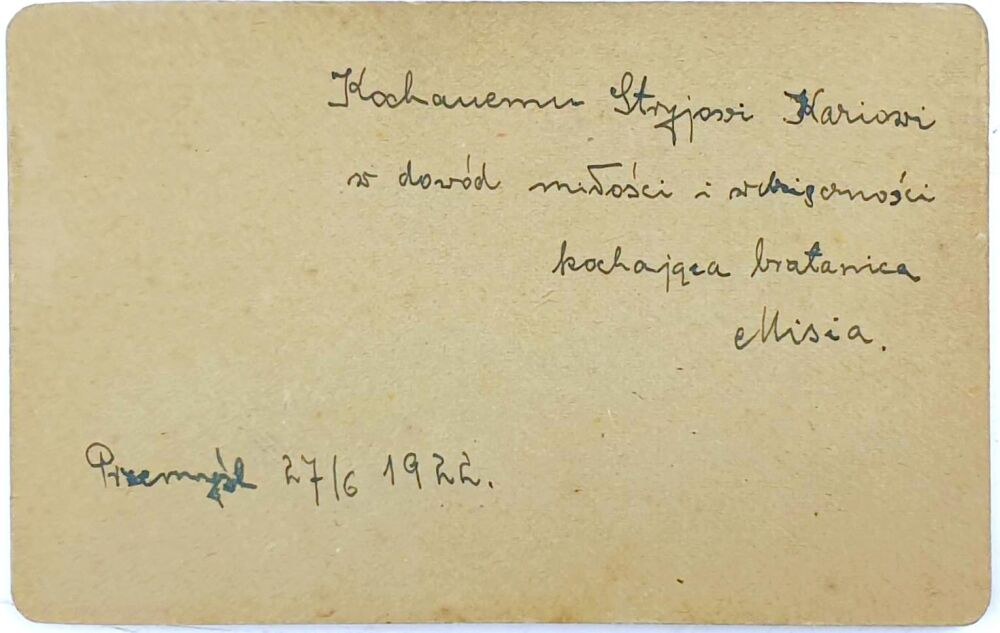 Kochanemu Stryjowi Kariowi
w dowód miłości i wdzięczności
kochająca bratanica
Misia.
Przemyśl 27/6 1922.